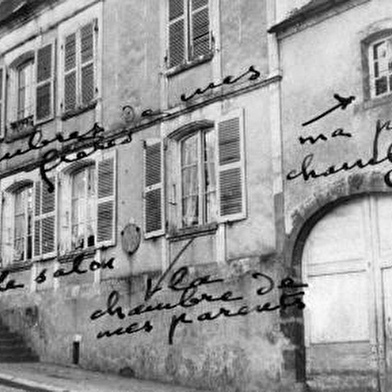 chambres de mes
frères
ma p
chamb
le salon
la
chambre de
mes parents